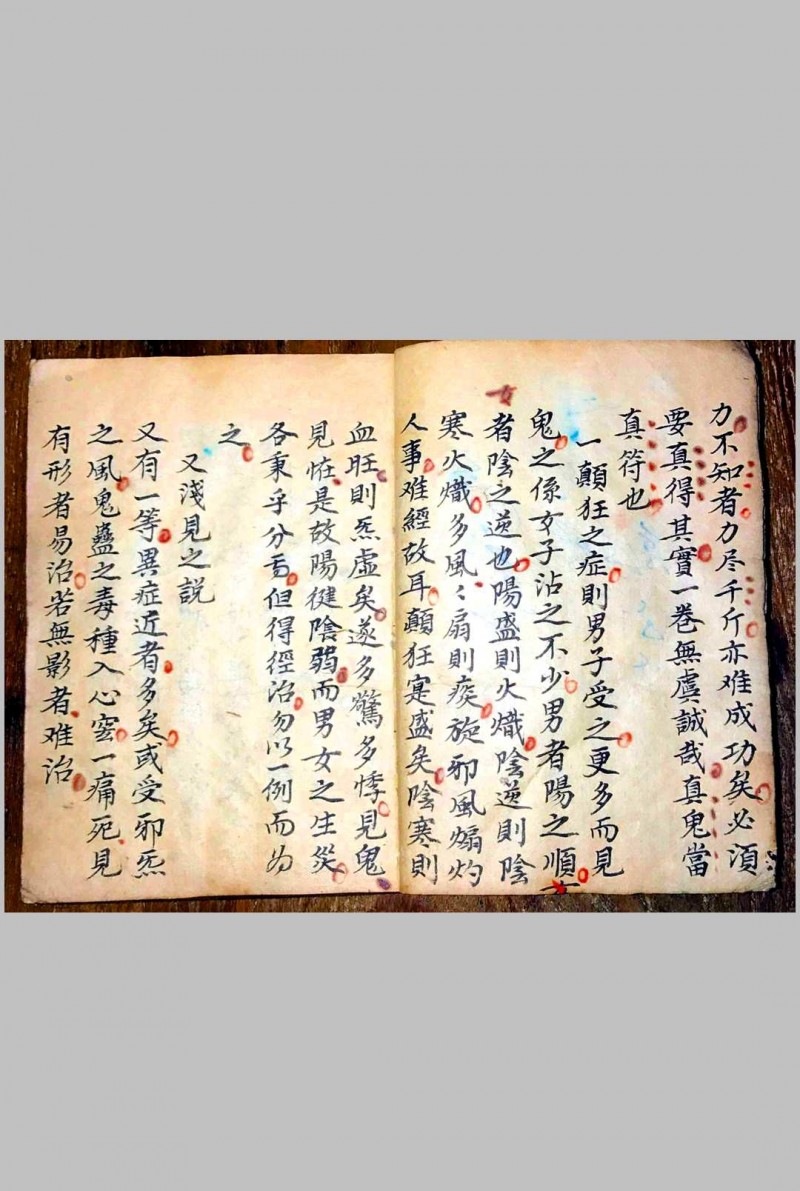 力不知者力尽千斤亦难成功矣必須
要真得其實一卷無虞誠哉真鬼當
真符也
一顛狂之症則男子受之更多而見
鬼之係女子沾之不少男者陽之順女
者陰之逆也陽盛則火熾陰逆則陰
寒火熾多風〻扇則痰旋邪風煽灼
人事难經故耳顛狂寔盛矣陰寒則
血旺則炁虛矣遂多驚多悸見鬼
見恠是故陽健陰弱而男女之生災
各秉乎分亐但得徑治勿以一例而为
之
又淺見之説
又有一等異症近者多矣或受邪炁
之風鬼蠱之毒種入心窍一痛死見
有形者易治若無影者难治